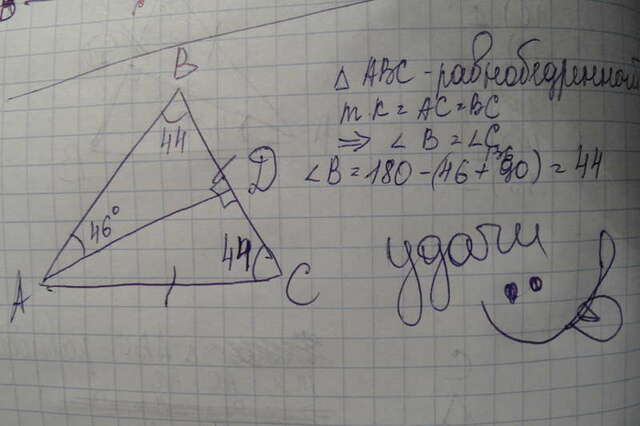 B
△ ABC - равнобедренный
т.к = AC = BC
44
⇒ ∠ B = ∠C
D
∠B = 180 - (46 + 90) = 44
46°
44
удачи
A
C